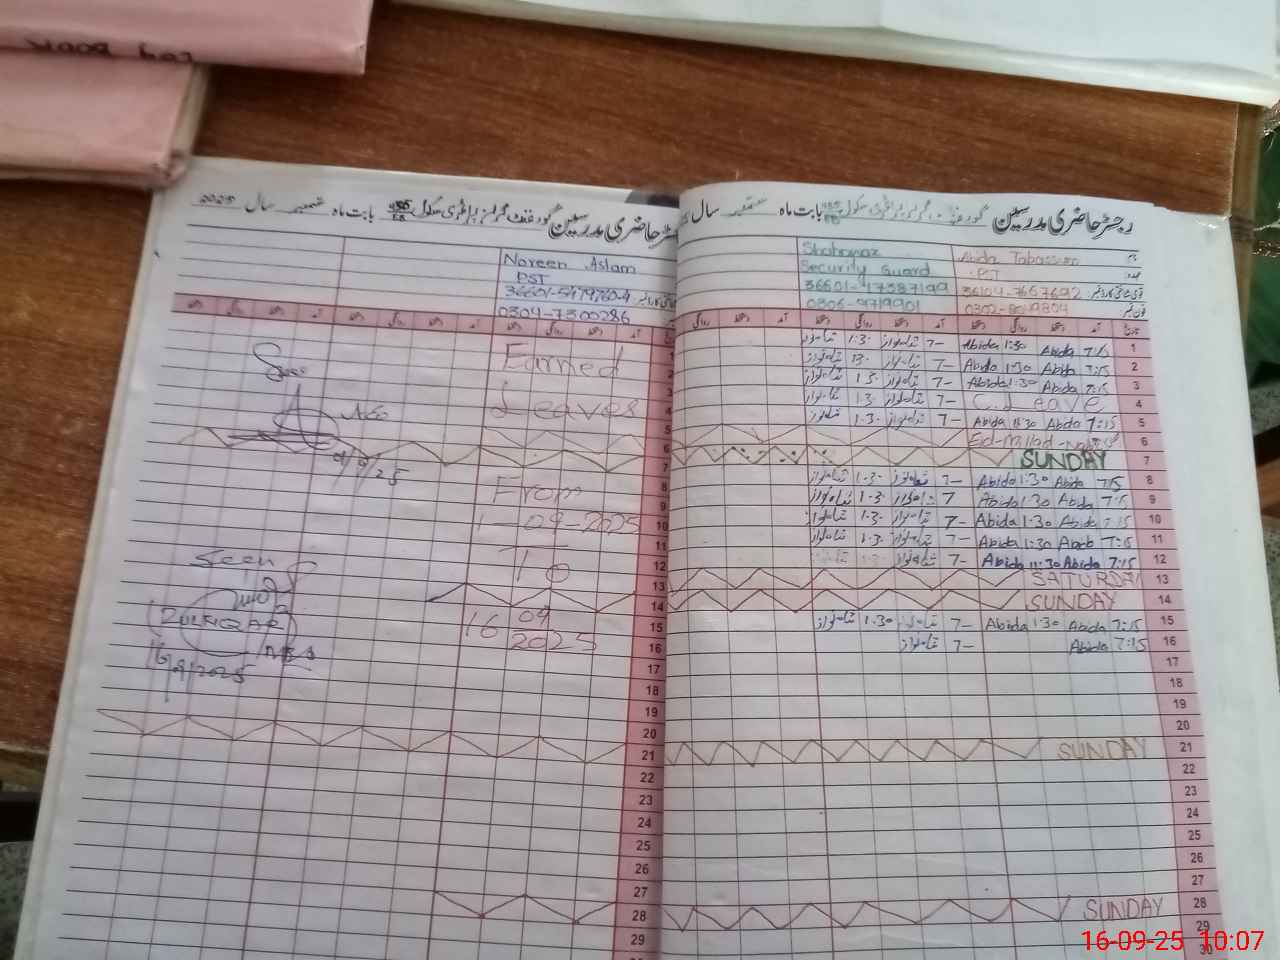 رجسٹر حاضری مدرسین گورنمنٹ گرلز پرائمری سکول 455 EB بابت ماہ ستمبر سال
Abida Tabassum
PST
Security Guard
0306-9719901
تاریخ آمد دستخط روانگی دستخط آمد دستخط روانگی دستخط آمد دستخط روانگی
1 7:15 Abida 1:30 Abida 7- شاہنواز 1:30 شاہنواز
2 7:15 Abida 1:30 Abida 7- شاہنواز 1:30 شاہنواز
3 7:15 Abida 1:30 Abida 7- شاہنواز 1:30 شاہنواز
4 C. Leave 7- شاہنواز 1:30 شاہنواز
5 7:15 Abida 11:30 Abida 7- شاہنواز 1:30 شاہنواز
6 Ed-Milad-
7 SUNDAY
8 7:15 Abida 1:30 Abida 7- شاہنواز 1:30 شاہنواز
9 7:15 Abida 1:30 Abida 7 شاہنواز 1:30 شاہنواز
10 7:15 Abida 1:30 Abida 7- شاہنواز 1:30 شاہنواز
11 7:15 Abida 1:30 Abida 7- شاہنواز 1:30 شاہنواز
12 7:15 Abida 11:30 Abida 7- شاہنواز 1:30 شاہنواز
13 SATURDAY
14 SUNDAY
15 7:15 Abida 1:30 Abida 7- شاہنواز 1:30 شاہنواز
16 7:15 Abida 7- شاہنواز
17
18
19
20
21 SUNDAY
22
23
24
25
26
27
28 SUNDAY
29
30
رجسٹر حاضری مدرسین گورنمنٹ گرلز پرائمری سکول 455 EB بابت ماہ ستمبر سال 2025
Noreen Aslam
PST
0304-7300286
آمد دستخط روانگی دستخط آمد دستخط روانگی دستخط آمد دستخط روانگی دستخط
Earned
Leaves
From
1-09-2025
To
16 09
2025
9/9/25
Seen
ZULFIQAR
16/9/2025
1
2
3
4
5
6
7
8
9
10
11
12
13
14
15
16
17
18
19
20
21
22
23
24
25
26
27
28
29
Book
16-09-25 10:07